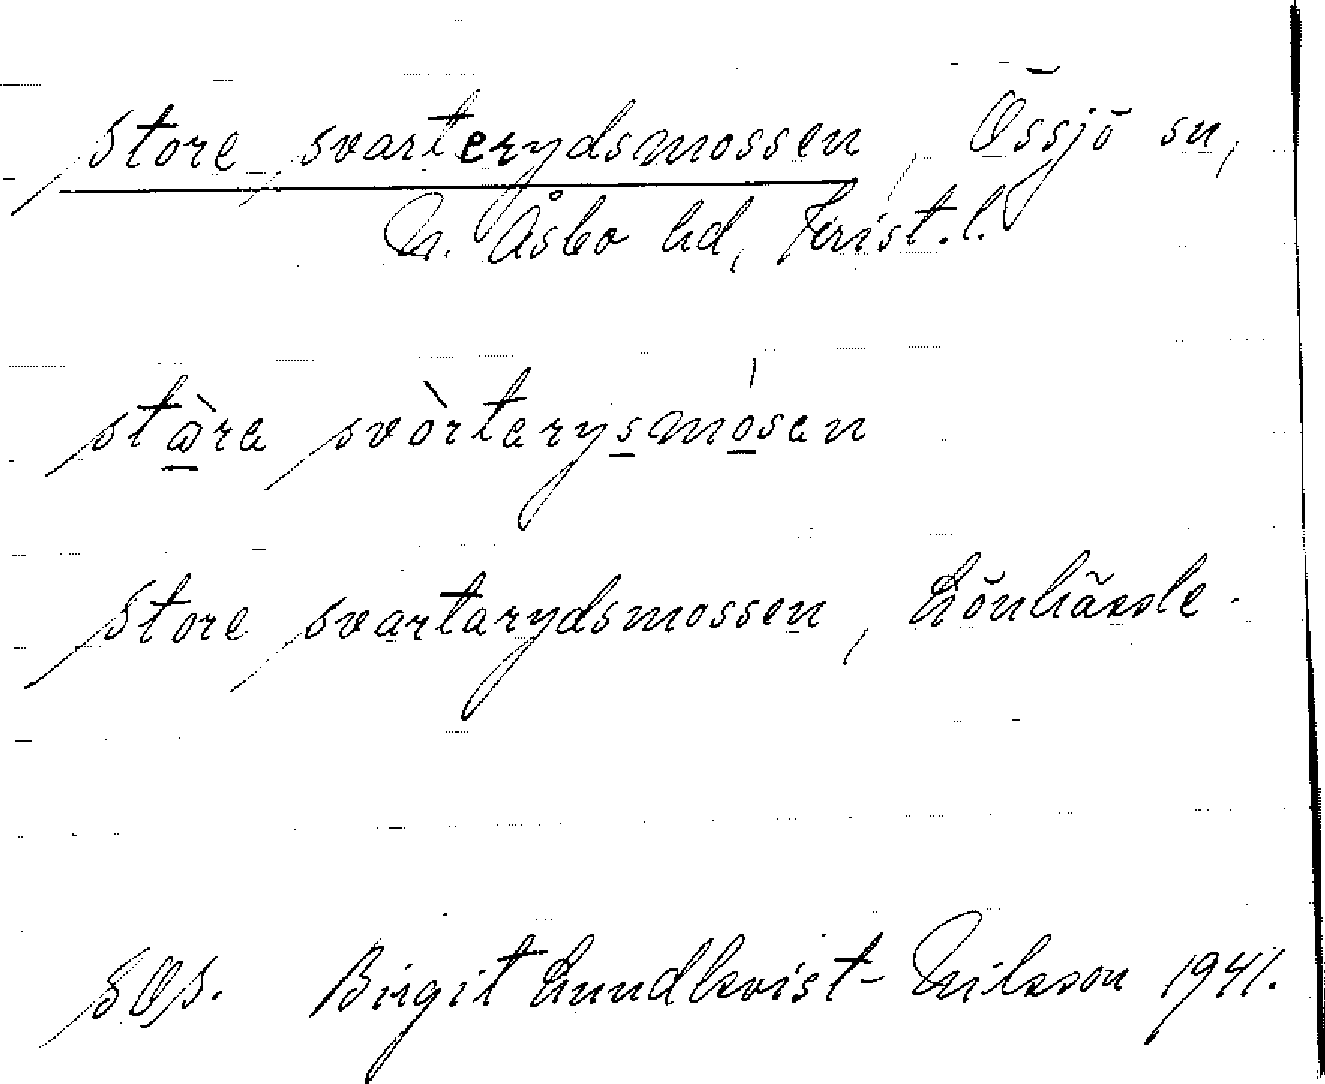 Store svarterydsmossen, Össjö sn,
N. Åsbo hd, Krist.l.
stòra svòrtarysmósen
Store svartarydsmossen, Lönhässle.
SOS. Birgit Lundkvist-Nilsson 1941.